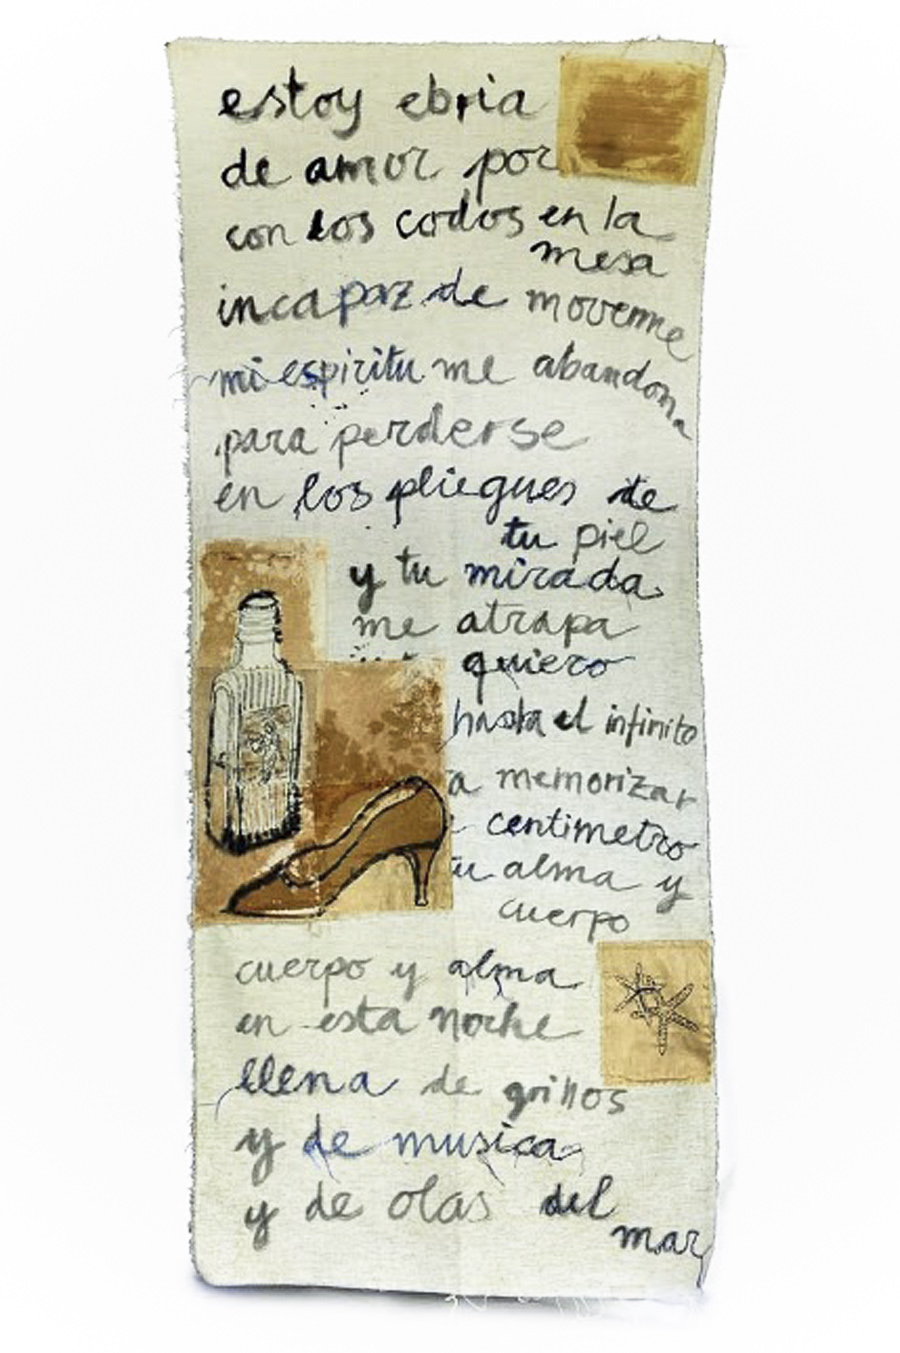 estoy ebria
de amor por
con los codos en la
mesa
incapaz de moverme
mi espiritu me abandona
para perderse
en los pliegues de
tu piel
y tu mirada
me atrapa
quiero
hasta el infinito
a memorizar
centimetro
tu alma y
cuerpo
cuerpo y alma
en esta noche
llena de grillos
y de musica
y de olas del
mar